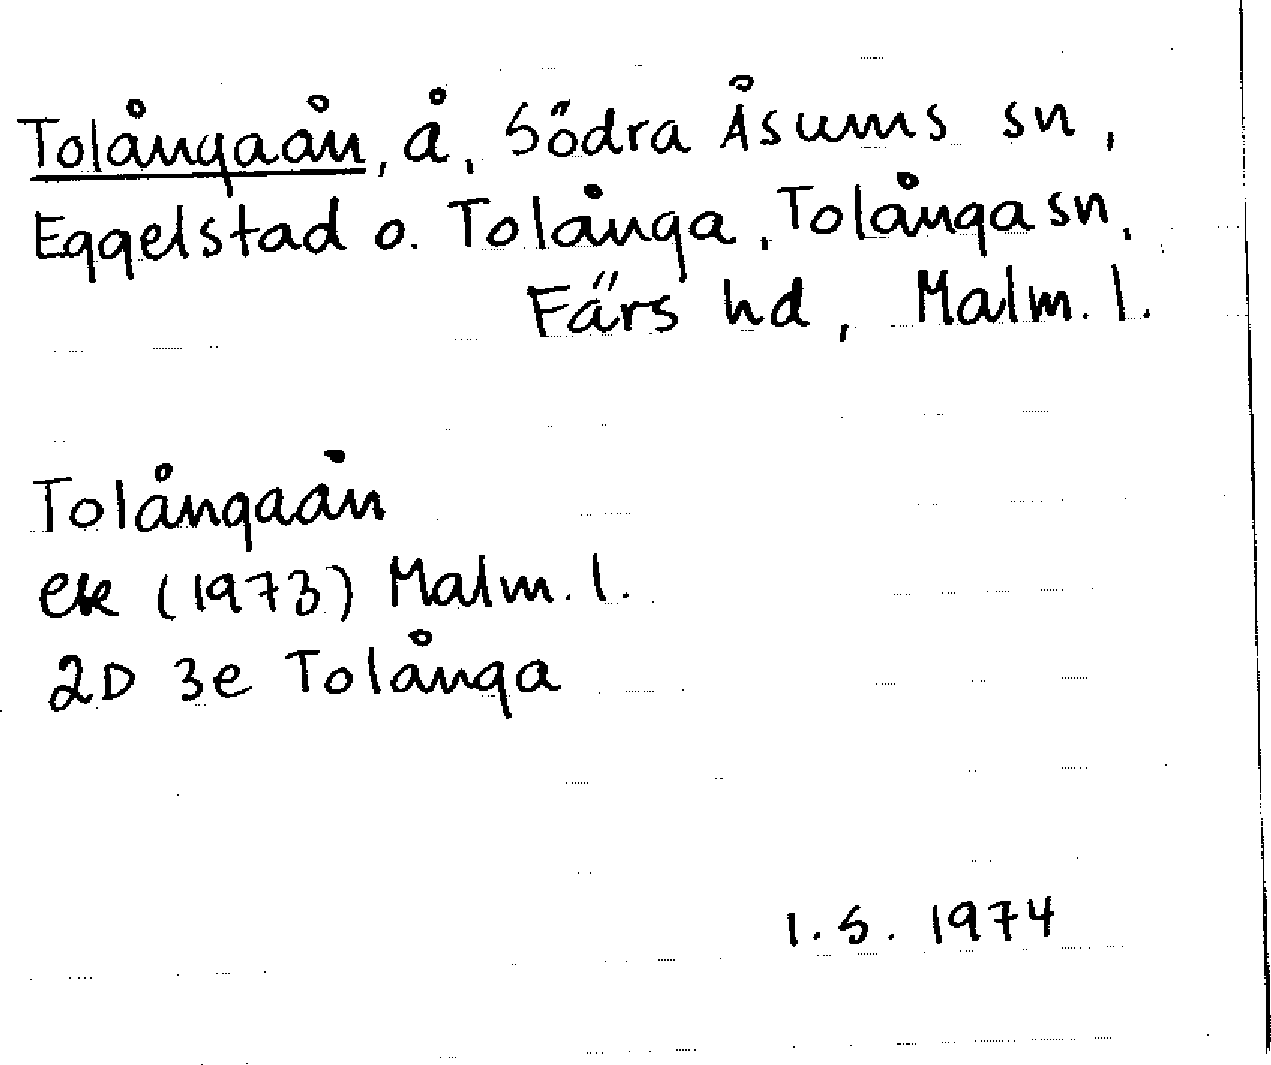 Tolångaån, å, Södra Åsums sn,
Eggelstad o. Tolånga, Tolånga sn,
Färs hd, Malm. l.
Tolångaån
ek (1973) Malm. l.
2D 3e Tolånga
1.5. 1974